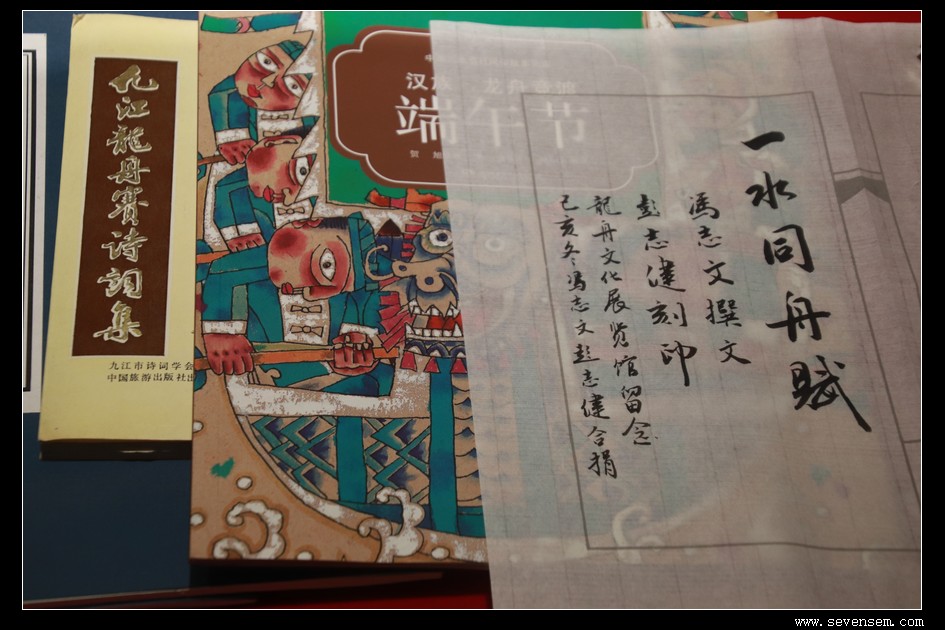 九江龍舟赛诗词集
九江市诗词学会
中国旅游出版社出
汉
端午节
贺
一水同舟賦
冯志文撰文
彭志健刻印
龍舟文化展览馆留念
己亥冬冯志文彭志健合捐
www.sevensem.com